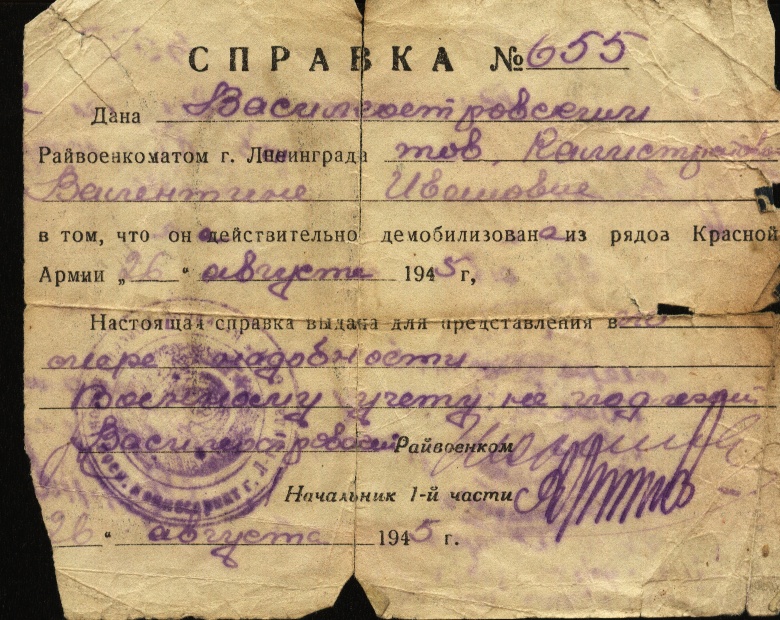 СПРАВКА № 655
Дана Василеостровским
Райвоенкоматом г. Ленинграда тов. Калистратовой
Валентине Ивановне
в том, что он а действительно демобилизован а из рядов Красной
Армии „ 26 “ августа 1945 г,
Настоящая справка выдана для представления в по
мере надобности
Воинскому учету не подлежит
Василеостровский Райвоенком
Начальник 1-й части
26 “ августа 1945 г.